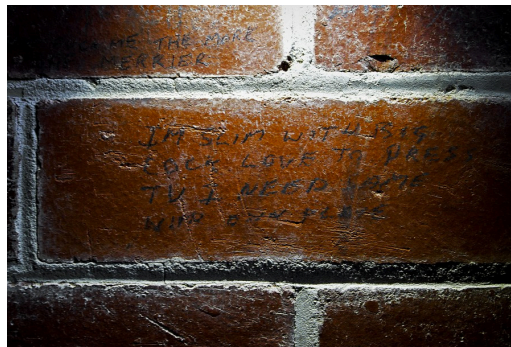 ME THE MORE
MERRIER
IM SLIM WITH BIG
COCK LOVE TO DRES
TV I NEED SOME
WHO OWN PLACE